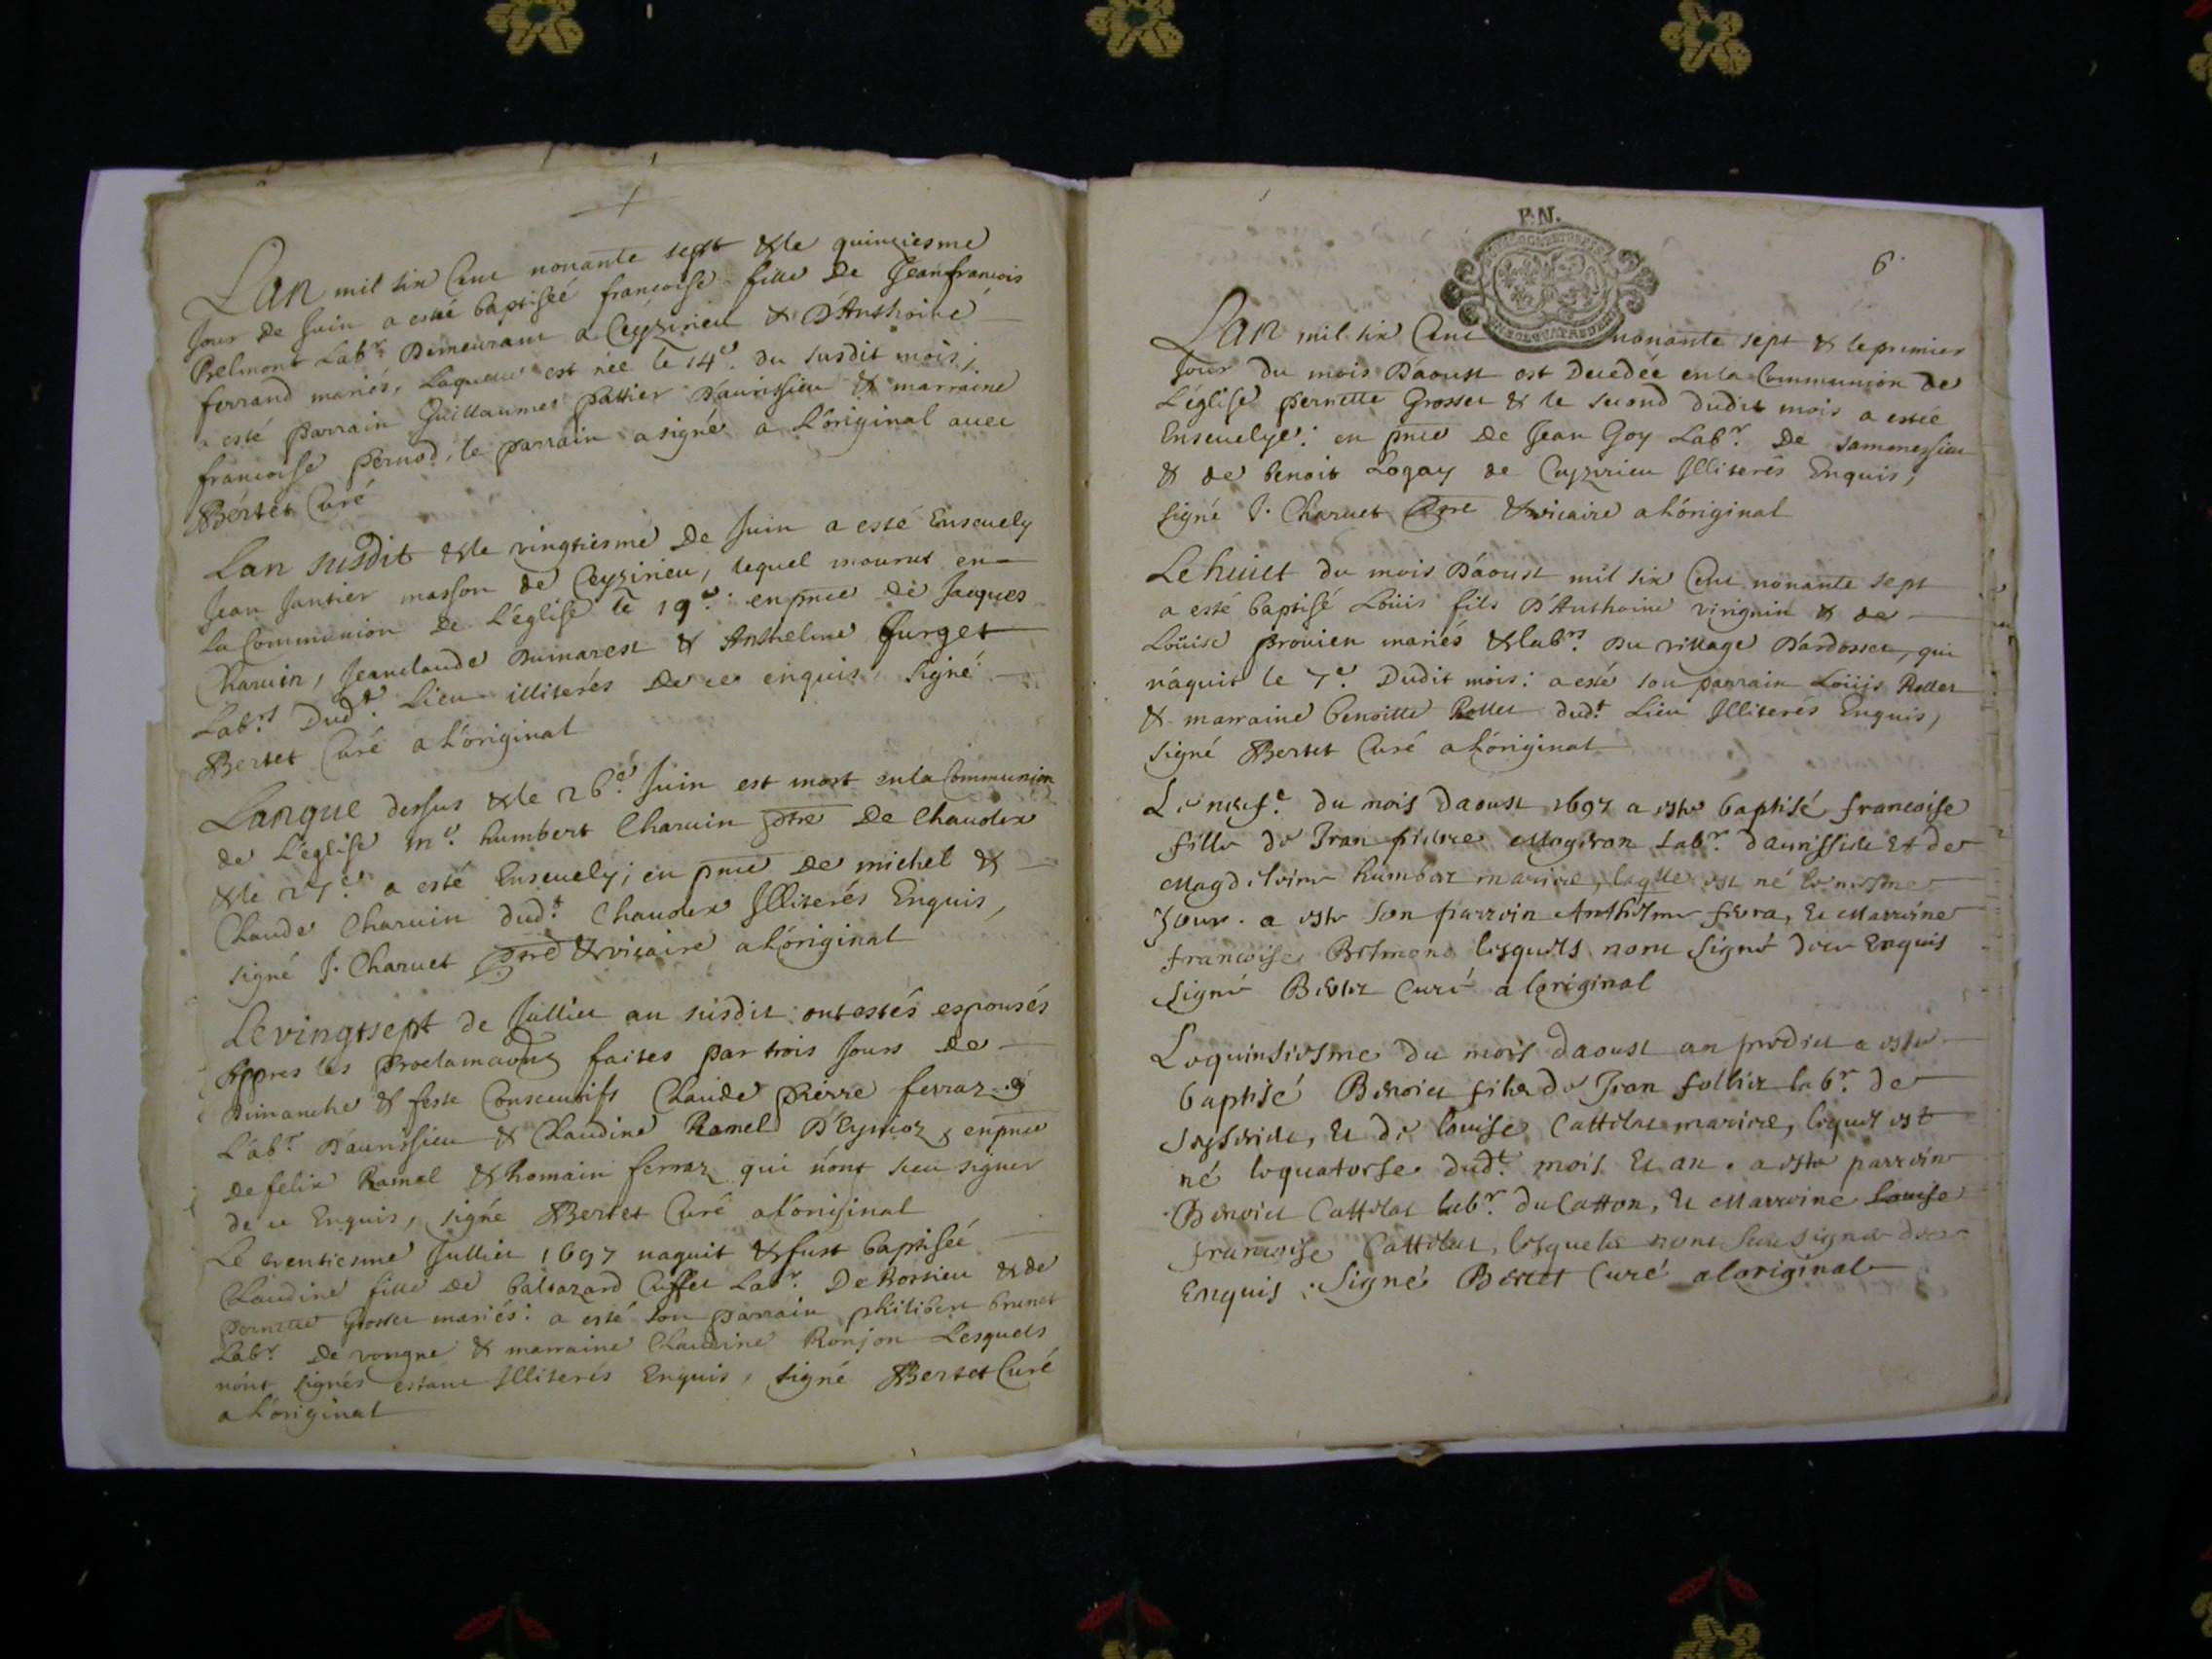 Lan mil six Cent nonante sept & le quinziesme
Jour De Juin a esté baptiseé francoise fille De Jeanfrancois
Belmont Lab.r Demeurant a Ceyzirieu & D'Anthoine
ferrand mariés, Laquelle est née le 14.e du susdit mois;
a esté parrain Guillaumes pattier D'aurissieu & marraine
francoise pernod, le parrain a signé a L'original avec
Bertet Curé
Lan susdit & le vingtiesme De Juin a esté Ensevely
Jean Jantier masson de Ceyzirieu, lequel mourut en
la Communion De L'église le 19.e: en pnce de Jacques
Charvin, Jeanclaude Dumarest & Anthelme Gurget
Lab.rs Dud.t Lieu illiterés De ce enquis, Signé
Bertet Curé a L'original
Lan que dessus & le 26.e Juin est mort en la Communion
de L'église m.e humbert Charvin ptre De Chavolex
& le 27.e a esté Ensevely; en pnce De michel &
Claude Charvin dud.t Chavolex Illiterés Enquis,
signé J. Charvet ptre & vicaire a L'original
Le vingtsept de Juillet an susdit ont estés espousés
Appres les proclamaons faites par trois Jours de
Dimanche & feste Consecutifs Claude pierre ferraz
Lab.r D'aurissieu & Claudine Ramel D'Eymioz, en pnce
De felix Ramel & Romain ferraz qui n'ont sceu signer
de ce Enquis, signé Bertet Curé a L'original
Le trentiesme Juillet 1697 naquit & fust baptiseé
Claudine fille De baltazard Cuffet Lab.r De Rossieu & de
pernette Grosset mariés: a esté son parrain philibert brunet
Lab.r De vongne & marraine Claudine Ronjon Lesquels
n'ont signés estant Illiterés Enquis, signé Bertet Curé
a L'original
P.N.
6.
Lan mil six Cent nonante sept & le premier
Jour du mois D'aoust est Decedée en la Communion de
L'église pernette Grosset & le second dudit mois a esteé
Ensevelye: en pnce De Jean Goy Lab.r De
& de benoit Logay de Ceyzirieu Illiterés Enquis,
signé J. Charvet ptre & vicaire a L'original
Le huict du mois D'aoust mil six Cent nonante sept
a esté baptisé Loüis fils D'Anthoine virignin & de
Loüise provien mariés & lab.rs Du village D'ardosset, qui
náquit le 7.e Dudit mois: a esté son parrain Loüis Rollet
& marraine benoitte Rollet dud.t Lieu Illiterés Enquis,
signé Bertet Curé a L'original
Le neuf.e du mois daoust 1697 a este baptisé francoise
fille de Jean pierre Magdron Lab.r daurissieu Et de
Magdeleine humbert mariez, laqlle est né le mesme
Jour. a este son parrein Anthelme, Et Marreine
francoise Belmont lesquels nont signé dece Enquis
signé Bertet Curé a loriginal
Le quinsiesme du mois daoust an predict a este
baptisé Benoict fils de Jean follier lab.r de
Seyserieu, Et de louise Cattelat mariez, lequel est
né le quatorse dud.t mois Et an. a este parrein
Benoict Cattelat lab.r du Catton, Et Marreine Louise
francoise Cattelat, lesquels nont sceu signer dece
Enquis: Signé Bertet Curé a loriginal